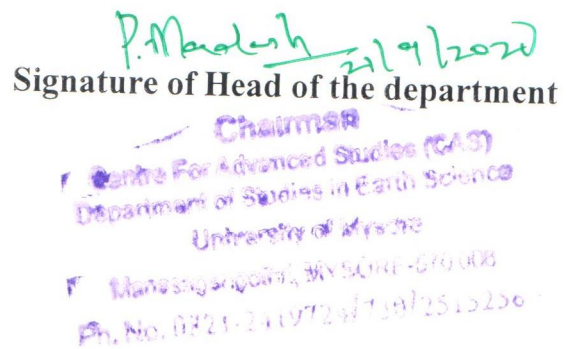 P. Madesh 21/9/2020
Signature of Head of the department
Chairman
Centre For Advanced Studies (CAS)
Department of Studies in Earth Science
University of Mysore
Manasagangothri, MYSORE-570 006
Ph. No. 0821-2419724/